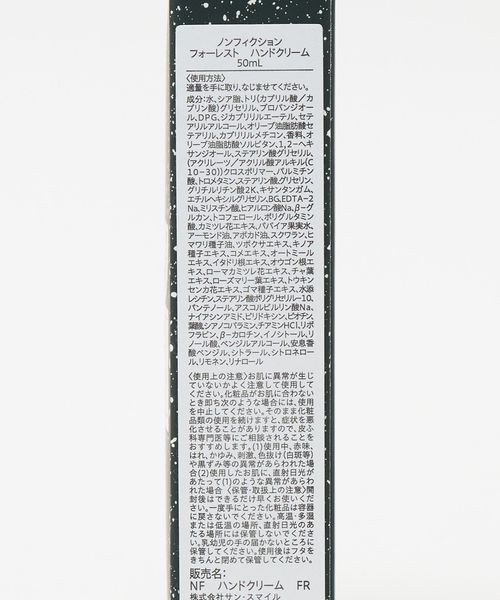 ノンフィクション
フォーレスト　ハンドクリーム
50mL
〈使用方法〉
適量を手に取り、なじませてください。
成分:水、シア脂、トリ(カプリル酸／カ
プリン酸)グリセリル、プロパンジオー
ル、DPG、ジカプリリルエーテル、セテ
アリルアルコール、オリーブ油脂肪酸セ
テアリル、カプリリルメチコン、香料、オ
リーブ油脂肪酸ソルビタン、1,2-ヘキ
サンジオール、ステアリン酸グリセリル、
(アクリレーツ／アクリル酸アルキル(C
10-30))クロスポリマー、パルミチン
酸、トロメタミン、ステアリン酸、グリセリン、
グリチルリチン酸2K、キサンタンガム、
エチルヘキシルグリセリン、BG、EDTA-2
Na、ミリスチン酸、ヒアルロン酸Na、β-グ
ルカン、トコフェロール、ポリグルタミン
酸、カミツレ花エキス、パパイア果実水、
アーモンド油、アボカド油、スクワラン、ヒ
マワリ種子油、ツボクサエキス、キノア
種子エキス、コメエキス、オートミール
エキス、イタドリ根エキス、オウゴン根エ
キス、ローマカミツレ花エキス、チャ葉
エキス、ローズマリー葉エキス、トウキン
センカ花エキス、ゴマ種子エキス、水添
レシチン、ステアリン酸ポリグリセリル-10、
パンテノール、アスコルビルリン酸Na、
ナイアシンアミド、ピリドキシン、ビオチン、
葉酸、シアノコバラミン、チアミンHCl、リボ
フラビン、β-カロチン、イノシトール、リ
ノール酸、ベンジルアルコール、安息香
酸ベンジル、シトラール、シトロネロー
ル、リモネン、リナロール
〈使用上の注意〉お肌に異常が生じ
ていないかよく注意して使用して
ください。化粧品がお肌に合わない
とき即ち次のような場合には、使用
を中止してください。そのまま化粧
品類の使用を続けますと、症状を悪
化させることがありますので、皮ふ
科専門医等にご相談されることを
おすすめします。(1)使用中、赤味、
はれ、かゆみ、刺激、色抜け(白斑等)
や黒ずみ等の異常があらわれた場
合(2)使用したお肌に、直射日光が
あたって(1)のような異常があらわ
れた場合 〈保管・取扱上の注意〉開
封後はできるだけ早くお使いくださ
い。一度手にとった化粧品は容器
に戻さないでください。高温・多湿
または低温の場所、直射日光のあ
たる場所には保管しないでくださ
い。乳幼児の手の届かないところに
保管してください。使用後はフタを
きちんと閉めて保管してください。
販売名:
NF　ハンドクリーム　FR
株式会社サン・スマイル